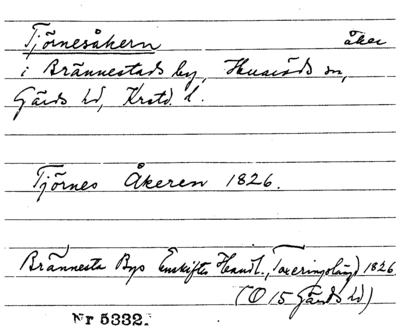 Tjörnesåkern åker
i Brännestads by, Huaröds sn,
Gärds hd, Krstd. l.
Tjörnes Åkeren 1826.
Brännesta Bys Enskiftes Handl., Taxeringslängd 1826
(O 15 Gärds hd)
Nr 5332.